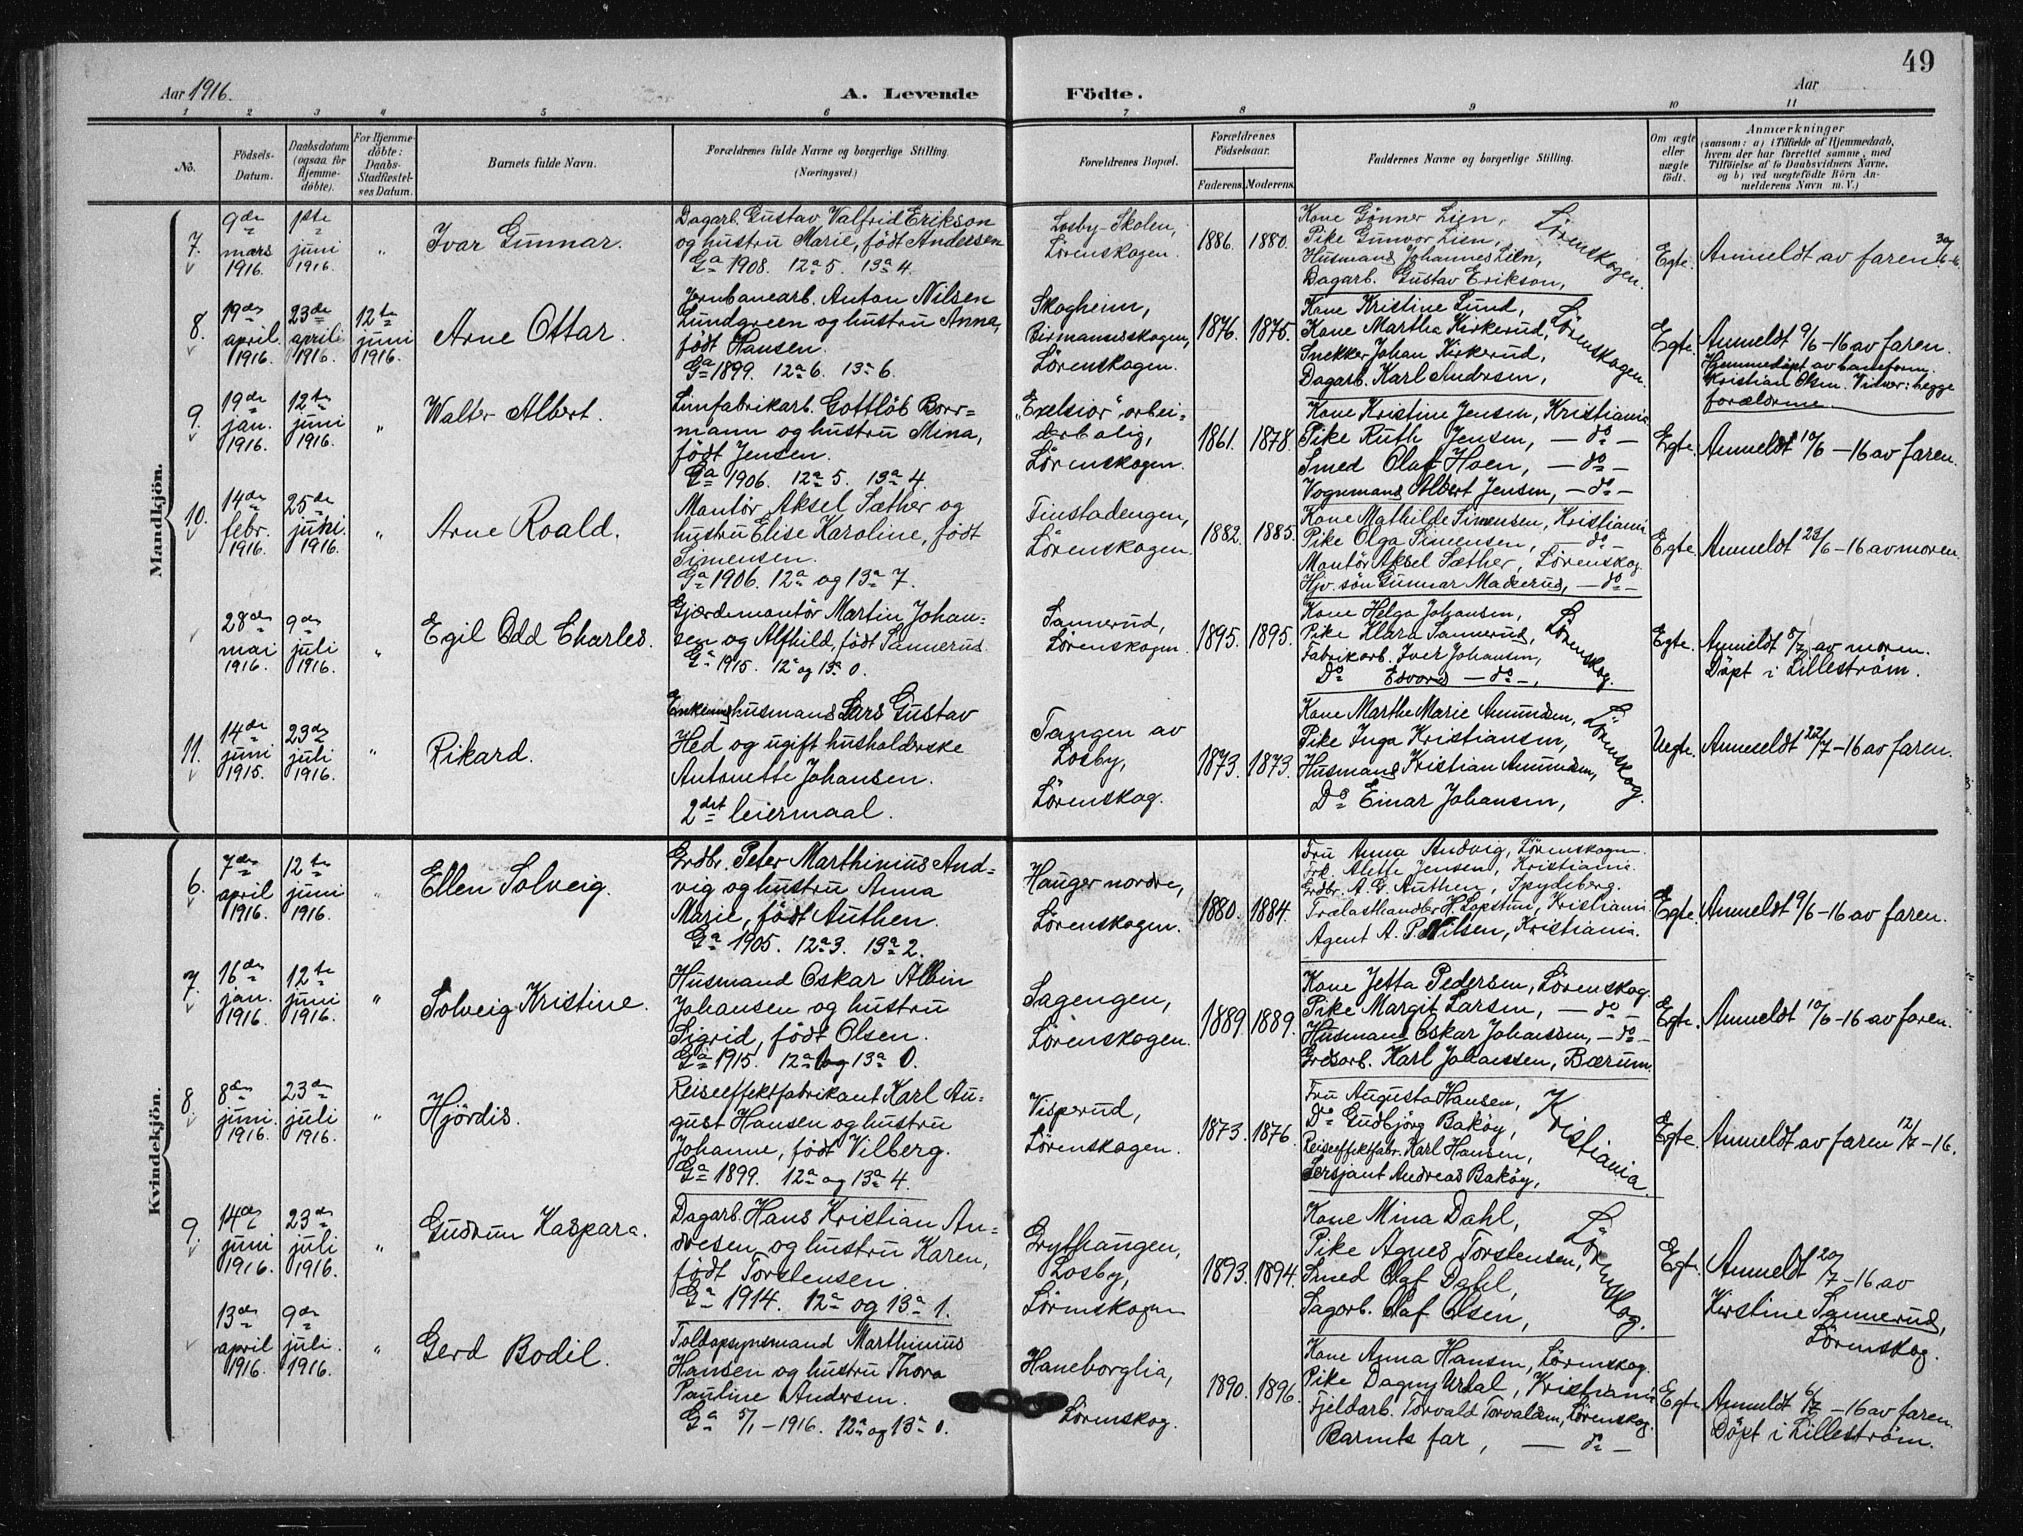 49
Aar 1916.
A. Levende Födte.
Aar
1 2 3 4 5 6 7 8 9 10 11
No.
Födsels-Datum.
Daabsdatum (ogsaa for Hjemme-döbte).
For Hjemme-döbte: Daabs-Stadfæstel-ses Datum.
Barnets fulde Navn.
Forældrenes fulde Navne og borgerlige Stilling.
(Næringsvei.)
Forældrenes Bopæl.
Forældrenes Födselsaar.
Faderens. Moderens.
Faddernes Navne og borgerlige Stilling.
Om ægte eller uægte födt.
Anmærkninger
(saasom: a) i Tilfælde af Hjemmedaab, hvem der har forrettet samme, med Tilföielse af to Daabsvidners Navne, og b) ved uægtefödte Börn An-melderens Navn m. V.)
Mandkjön.
7. 9de mars 1916. 1ste juni 1916. "
Ivar Gunnar.
Dagarb. Gustav Valfrid Erikson
og hustru Marie, født Andersen
Ga 1908. 12a 5. 13a 4.
Losby-Skolen,
Lørenskogen.
1886. 1880.
Kone Gønner Lien,
Pike Gunvor Lien,
Husmand Johannes Lien,
Dagarb. Gustav Erikson,
Lørenskogen.
Egte.
Anmeldt av faren
8. 19de april 1916. 23de april 1916. 12te juni 1916.
Arne Ottar.
Jernbanearb. Anton Nilsen
Lundgreen og hustru Anna,
født Hansen.
Ga 1899. 12a 6. 13a 6.
Skogheim,
Birmansskogen,
Lørenskogen.
1876. 1875.
Kone Kristine Lund,
Kone Martha Kirkerud,
Snekker Johan Kirkerud,
Dagarb. Karl Andersen,
Lørenskogen.
Egte.
Anmeldt 9/6-16 av faren.
Hjemmedøpt av baneform.
Kristian Olsen. Vidner: begge
forældrene.
9. 19de jan. 1916. 12te juni 1916. "
Walter Albert.
Limfabrikarb. Gottlob Borr=
mann og hustru Mina,
født Jensen.
Ga 1906. 12a 5. 13a 4.
"Exelsior" arbei-
derbolig,
Lørenskogen.
1861. 1878.
Kone Kristine Jensen, Kristiania
Pike Ruth Jensen, — do —
Smed Olaf Hoen, — do —
Vognmand Albert Jensen, — do —
Egte.
Anmeldt 10/6 -16 av faren.
10. 14de febr. 1916. 25de juni 1916. "
Arne Roald.
Montør Aksel Sæther og
hustru Elise Karoline, født
Simensen.
Ga 1906. 12a og 13a 7.
Finstadengen,
Lørenskogen.
1882. 1885.
Kone Mathilde Simensen, Kristiania
Pike Olga Simensen, — do —
Montør Aksel Sæther, Lørenskog.
Hjv. søn Gunnar Maderud, — do —
Egte.
Anmeldt 23/6-16 av moren.
28de mai 1916. 9de juli 1916. "
Egil Odd Charles.
Gjærdemontør Martin Johan-
sen og Alfhild, født Sannerud
Ga 1915. 12a og 13a 0.
Sannerud,
Lørenskogen.
1895. 1895.
Kone Helga Johansen,
Pike Klara Sannerud,
Fabrikarb. Iver Johansen,
Do Edvard — do —,
Lørenskog.
Egte.
Anmeldt 8/7 av moren.
Døpt i Lillestrøm.
11. 14de juni 1915. 23de juli 1916. "
Rikard.
Enkemand husmand Lars Gustav
Hed og ugift husholderske
Antonette Johansen.
2det leiermaal.
Tangen av
Losby,
Lørenskog.
1873. 1873.
Kone Marthe Marie Amundsen,
Pike Inga Kristiansen,
Husmand Kristian Amundsen,
Do Einar Johansen,
Lørenskog.
Uegte.
Anmeldt 22/7-16 av faren.
Kvindekjön.
6. 7de april 1916. 12te juni 1916. "
Ellen Solveig.
Grdbr. Peter Marthinius And-
vig og hustru Anna
Marie, født Authen.
Ga 1905. 12a 3. 13a 2.
Hauger nordre,
Lørenskogen.
1880. 1884.
Fru Anna Andvig, Lørenskogen.
Frk. Alette Jensen, Kristiania.
Grdbr. A. G. Authen, Spydeberg.
Trælasthandler H. Lopstun, Kristiania
Agent A. P. Nilsen, Kristiania.
Egte.
Anmeldt 9/6-16 av faren.
7. 16de jan. 1916. 12te juni 1916. "
Solveig Kristine.
Husmand Oskar Albin
Johansen og hustru
Sigrid, født Olsen.
Ga 1915. 12a 1 og 13a 0.
Sagengen,
Lørenskogen.
1889. 1889.
Kone Jetta Pedersen, Lørenskog.
Pike Margit Larsen, — do —
Husmand Oskar Johanssen, — do —
Grdsarb. Karl Johanssen, Bærum.
Egte.
Anmeldt 10/6-16 av faren.
8. 8de juni 1916. 23de juli 1916. "
Hjördis.
Reiseeffektfabrikant Karl Au-
gust Hansen og hustru
Johanne, født Vilberg.
Ga 1899. 12a og 13a 4.
Visperud,
Lørenskogen.
1873. 1876.
Fru Augusta Hansen,
Do Gudbjörg Bakøy,
Reiseeffektfabr. Karl Hansen,
Sersjant Andreas Bakøy,
Kristiania.
Egte.
Anmeldt av faren 12/7-16.
9. 14de juni 1916. 23de juli 1916. "
Gudrun Kaspara.
Dagarb. Hans Kristian An-
dresen og hustru Karen,
født Torstensen
Ga 1914. 12a og 13a 1.
Grythaugen,
Losby,
Lørenskogen
1893. 1894.
Kone Mina Dahl,
Pike Agnes Torstensen,
Smed Olaf Dahl,
Sagarb. Olaf Olsen,
Lørenskog.
Egte.
Anmeldt 20/7-16 av
Kirstine Sannerud,
Lørenskog.
13de april 1916. 9de juli 1916. "
Gerd Bodil.
Toldopsynsmand Marthinius
Hansen og hustru Thora
Pauline Andersen.
Ga 5/1-1916. 12a og 13a 0.
Haneborglia,
Lørenskog.
1890. 1896.
Kone Anna Hansen, Lørenskog.
Pike Dagny Urdal, Kristiania
Fjeldarb. Torvald Torvaldsen, Lørenskog.
Barnets far, — do —
Egte.
Anmeldt 6/7-16 av faren.
Døpt i Lillestrøm.